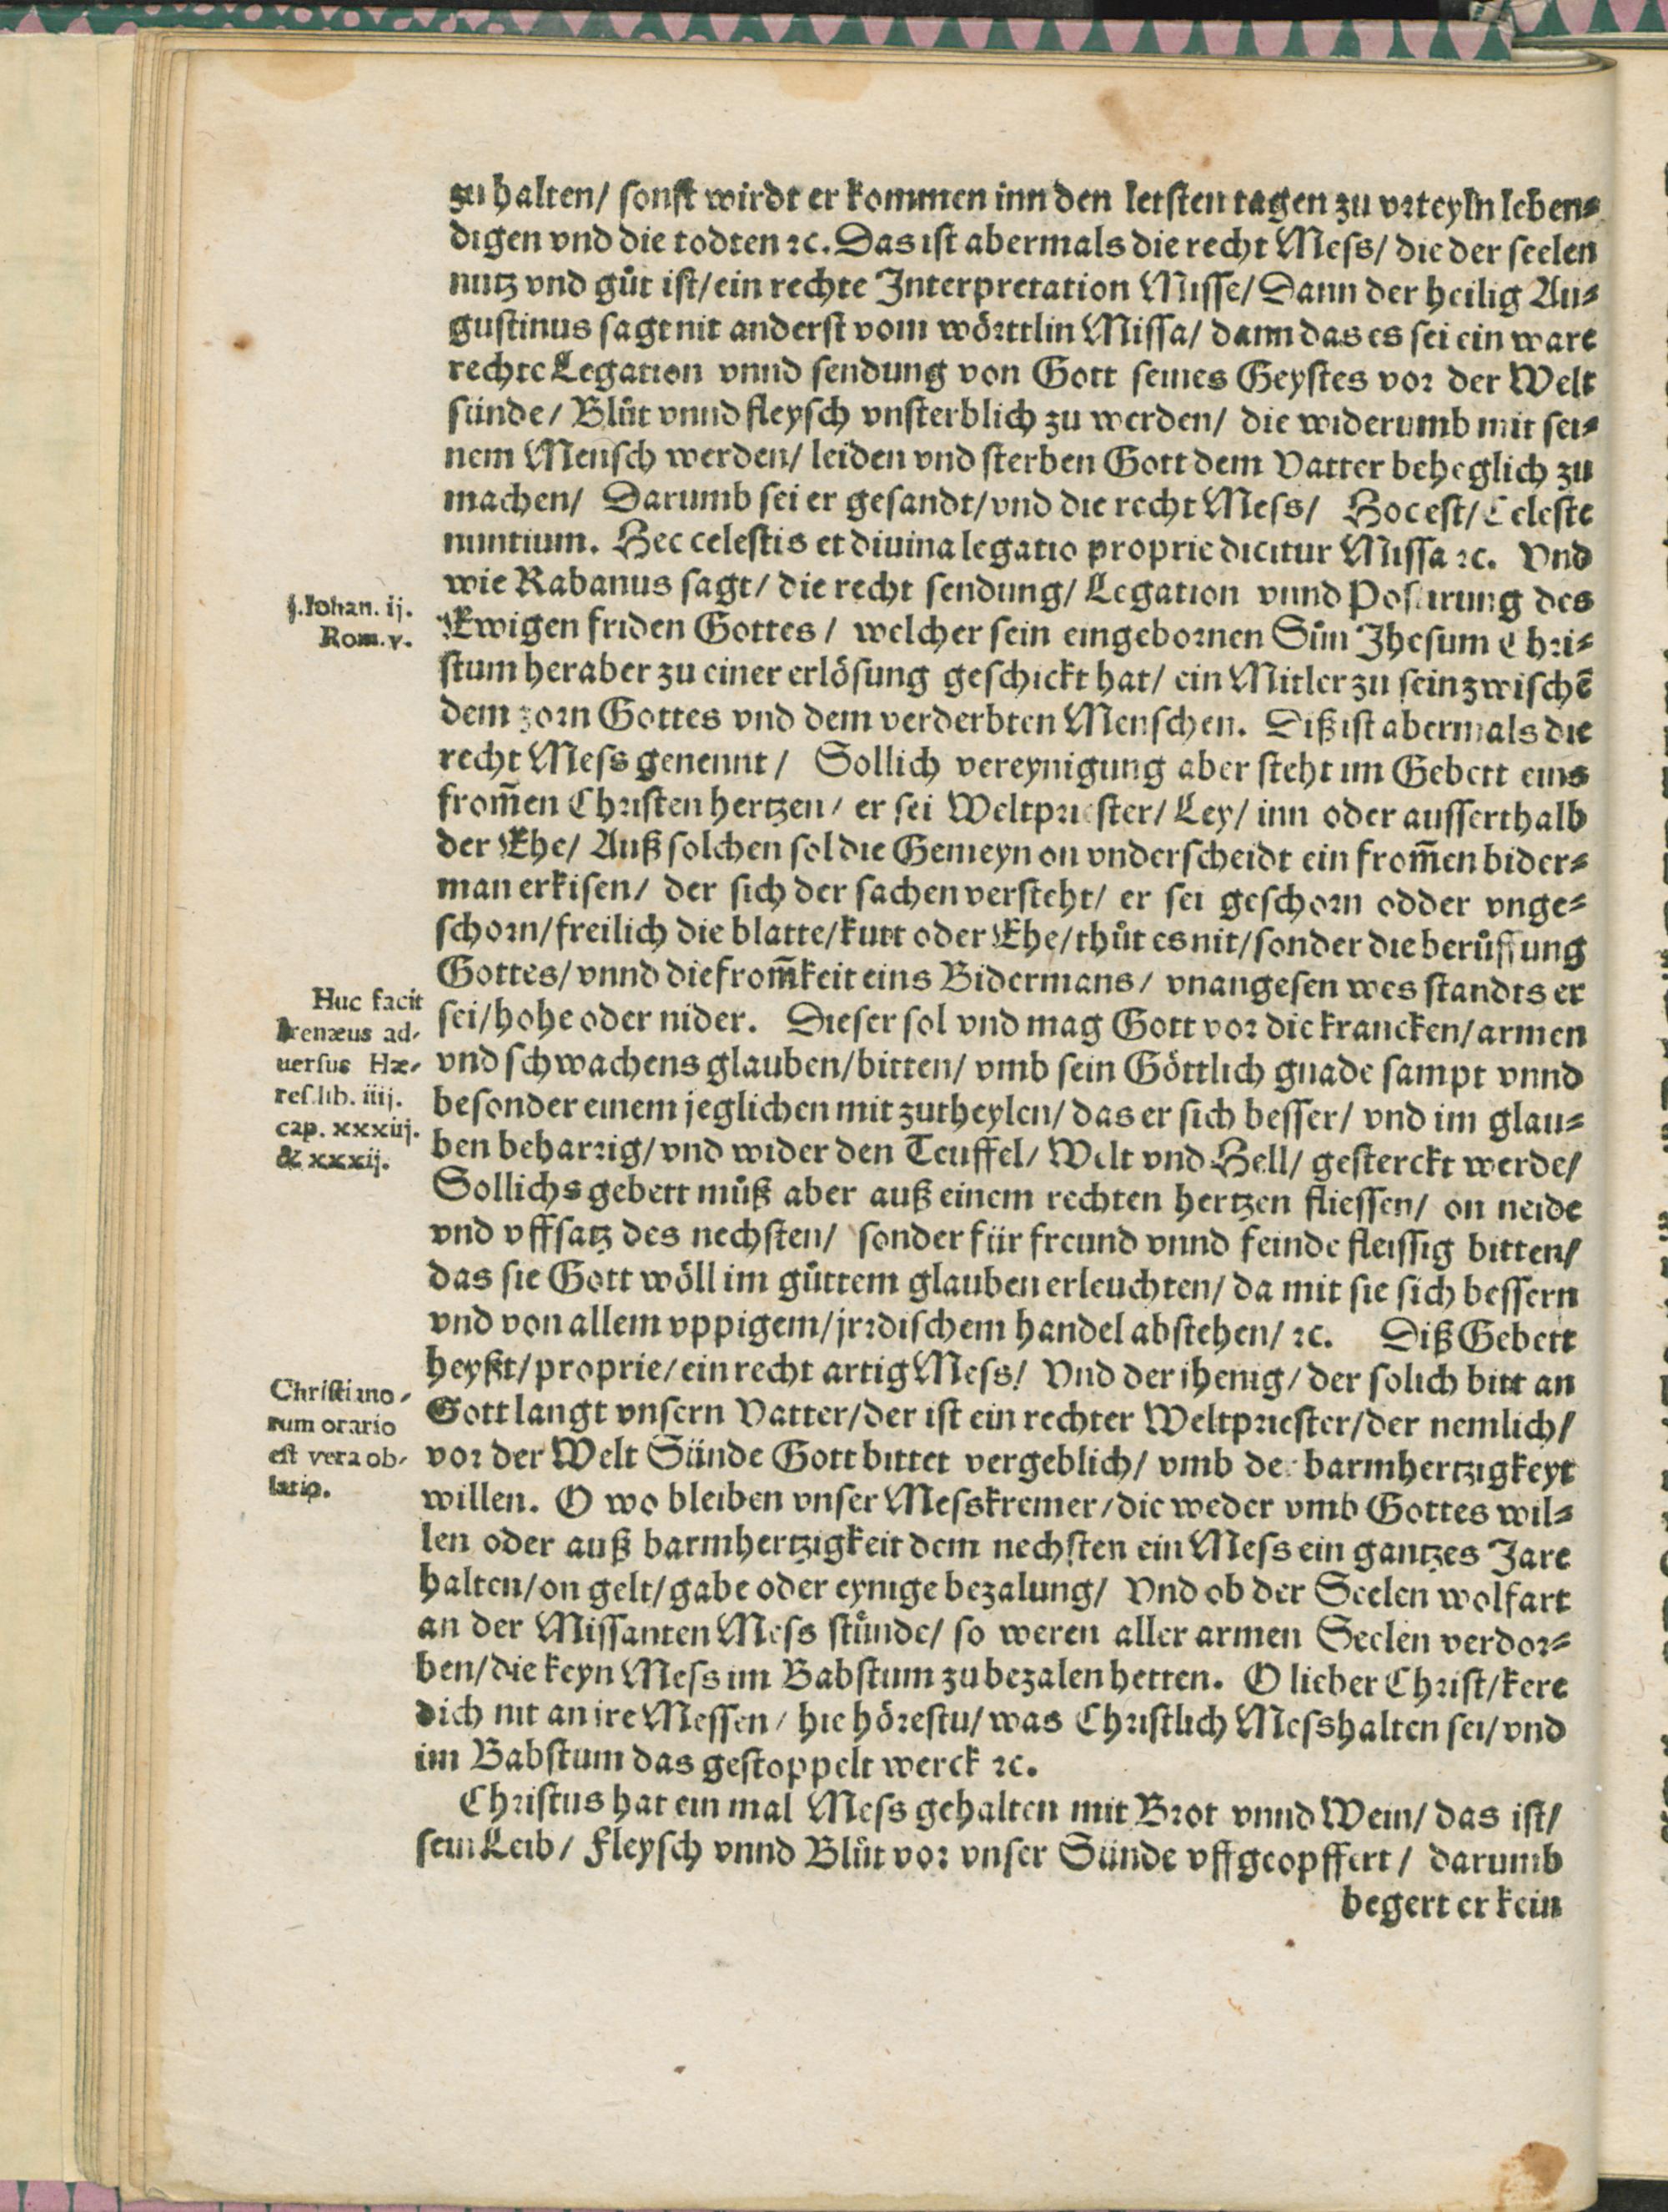 zu halten/ sonst wirdt er kommen inn den letsten tagen zu vrteyln leben⸗
digen vnd die todten ꝛc. Das ist abermals die recht Mess/ die der seelen
nutz vnd gůt ist/ ein rechte Interpretation Misse/ Dann der heilig Au⸗
gustinus sagt nit anderst vom wörttlin Missa/ dann das es sei ein ware
rechte Legation vnnd sendung von Gott seines Geystes vor der Welt
sünde/ Blůt vnnd fleysch vnsterblich zu werden/ die widerumb mit sei⸗
nem Mensch werden/ leiden vnd sterben Gott dem Vatter beheglich zu
machen/ Darumb sei er gesandt/ vnd die recht Mess/ Hoc est/ Celeste
nuntium. Hec celestis et diuina legatio proprie dicitur Missa ꝛc. Vnd
wie Rabanus sagt/ die recht sendung/ Legation vnnd Postirung des
j. Iohan. ij.
Rom. v.
Ewigen friden Gottes/ welcher sein eingebornen Sůn Jhesum Chri⸗
stum heraber zu einer erlösung geschickt hat/ ein Mitler zu sein zwischē
dem zorn Gottes vnd dem verderbten Menschen. Diß ist abermals die
recht Mess genennt/ Sollich vereynigung aber steht im Gebett eins
from̄en Christen hertzen/ er sei Weltpriester/ Ley/ inn oder ausserthalb
der Ehe/ Auß solchen sol die Gemeyn on vnderscheidt ein from̄en bider⸗
man erkisen/ der sich der sachen versteht/ er sei geschorn odder vnge⸗
schorn/ freilich die blatte/ kutt oder Ehe/ thůt es nit/ sonder die berůffung
Gottes/ vnnd die from̄keit eins Bidermans/ vnangesen wes standts er
Huc facit
Irenæus ad-
uersus Hæ-
res. lib. iiij.
cap. xxxiij.
& xxxij.
sei/ hohe oder nider. Dieser sol vnd mag Gott vor die krancken/ armen
vnd schwachens glauben/ bitten/ vmb sein Göttlich gnade sampt vnnd
besonder einem jeglichen mit zutheylen/ das er sich besser/ vnd im glau⸗
ben beharrig/ vnd wider den Teuffel/ Welt vnd Hell/ gesterckt werde/
Sollichs gebett můß aber auß einem rechten hertzen fliessen/ on neide
vnd vffsatz des nechsten/ sonder für freund vnnd feinde fleissig bitten/
das sie Gott wöll im gůttem glauben erleuchten/ da mit sie sich bessern
vnd von allem vppigem/ jrrdischem handel abstehen/ ꝛc. Diß Gebett
heyßt/ proprie/ ein recht artig Mess/ Vnd der ihenig/ der solich bitt an
Christiano-
rum oratio
est vera ob-
latio.
Gott langt vnsern Vatter/ der ist ein rechter Weltpriester/ der nemlich/
vor der Welt Sünde Gott bittet vergeblich/ vmb der barmhertzigkeyt
willen. O wo bleiben vnser Messkremer/ die weder vmb Gottes wil⸗
len oder auß barmhertzigkeit dem nechsten ein Mess ein gantzes Jare
halten/ on gelt/ gabe oder eynige bezalung/ Vnd ob der Seelen wolfart
an der Missanten Mess stůnde/ so weren aller armen Seelen verdor⸗
ben/ die keyn Mess im Babstum zu bezalen hetten. O lieber Christ/ kere
dich nit an ire Messen/ hie hörestu/ was Christlich Messhalten sei/ vnd
im Babstum das gestoppelt werck ꝛc.
Christus hat ein mal Mess gehalten mit Brot vnnd Wein/ das ist/
sein Leib/ Fleysch vnnd Blůt vor vnser Sünde vffgeopffert/ darumb
begert er kein